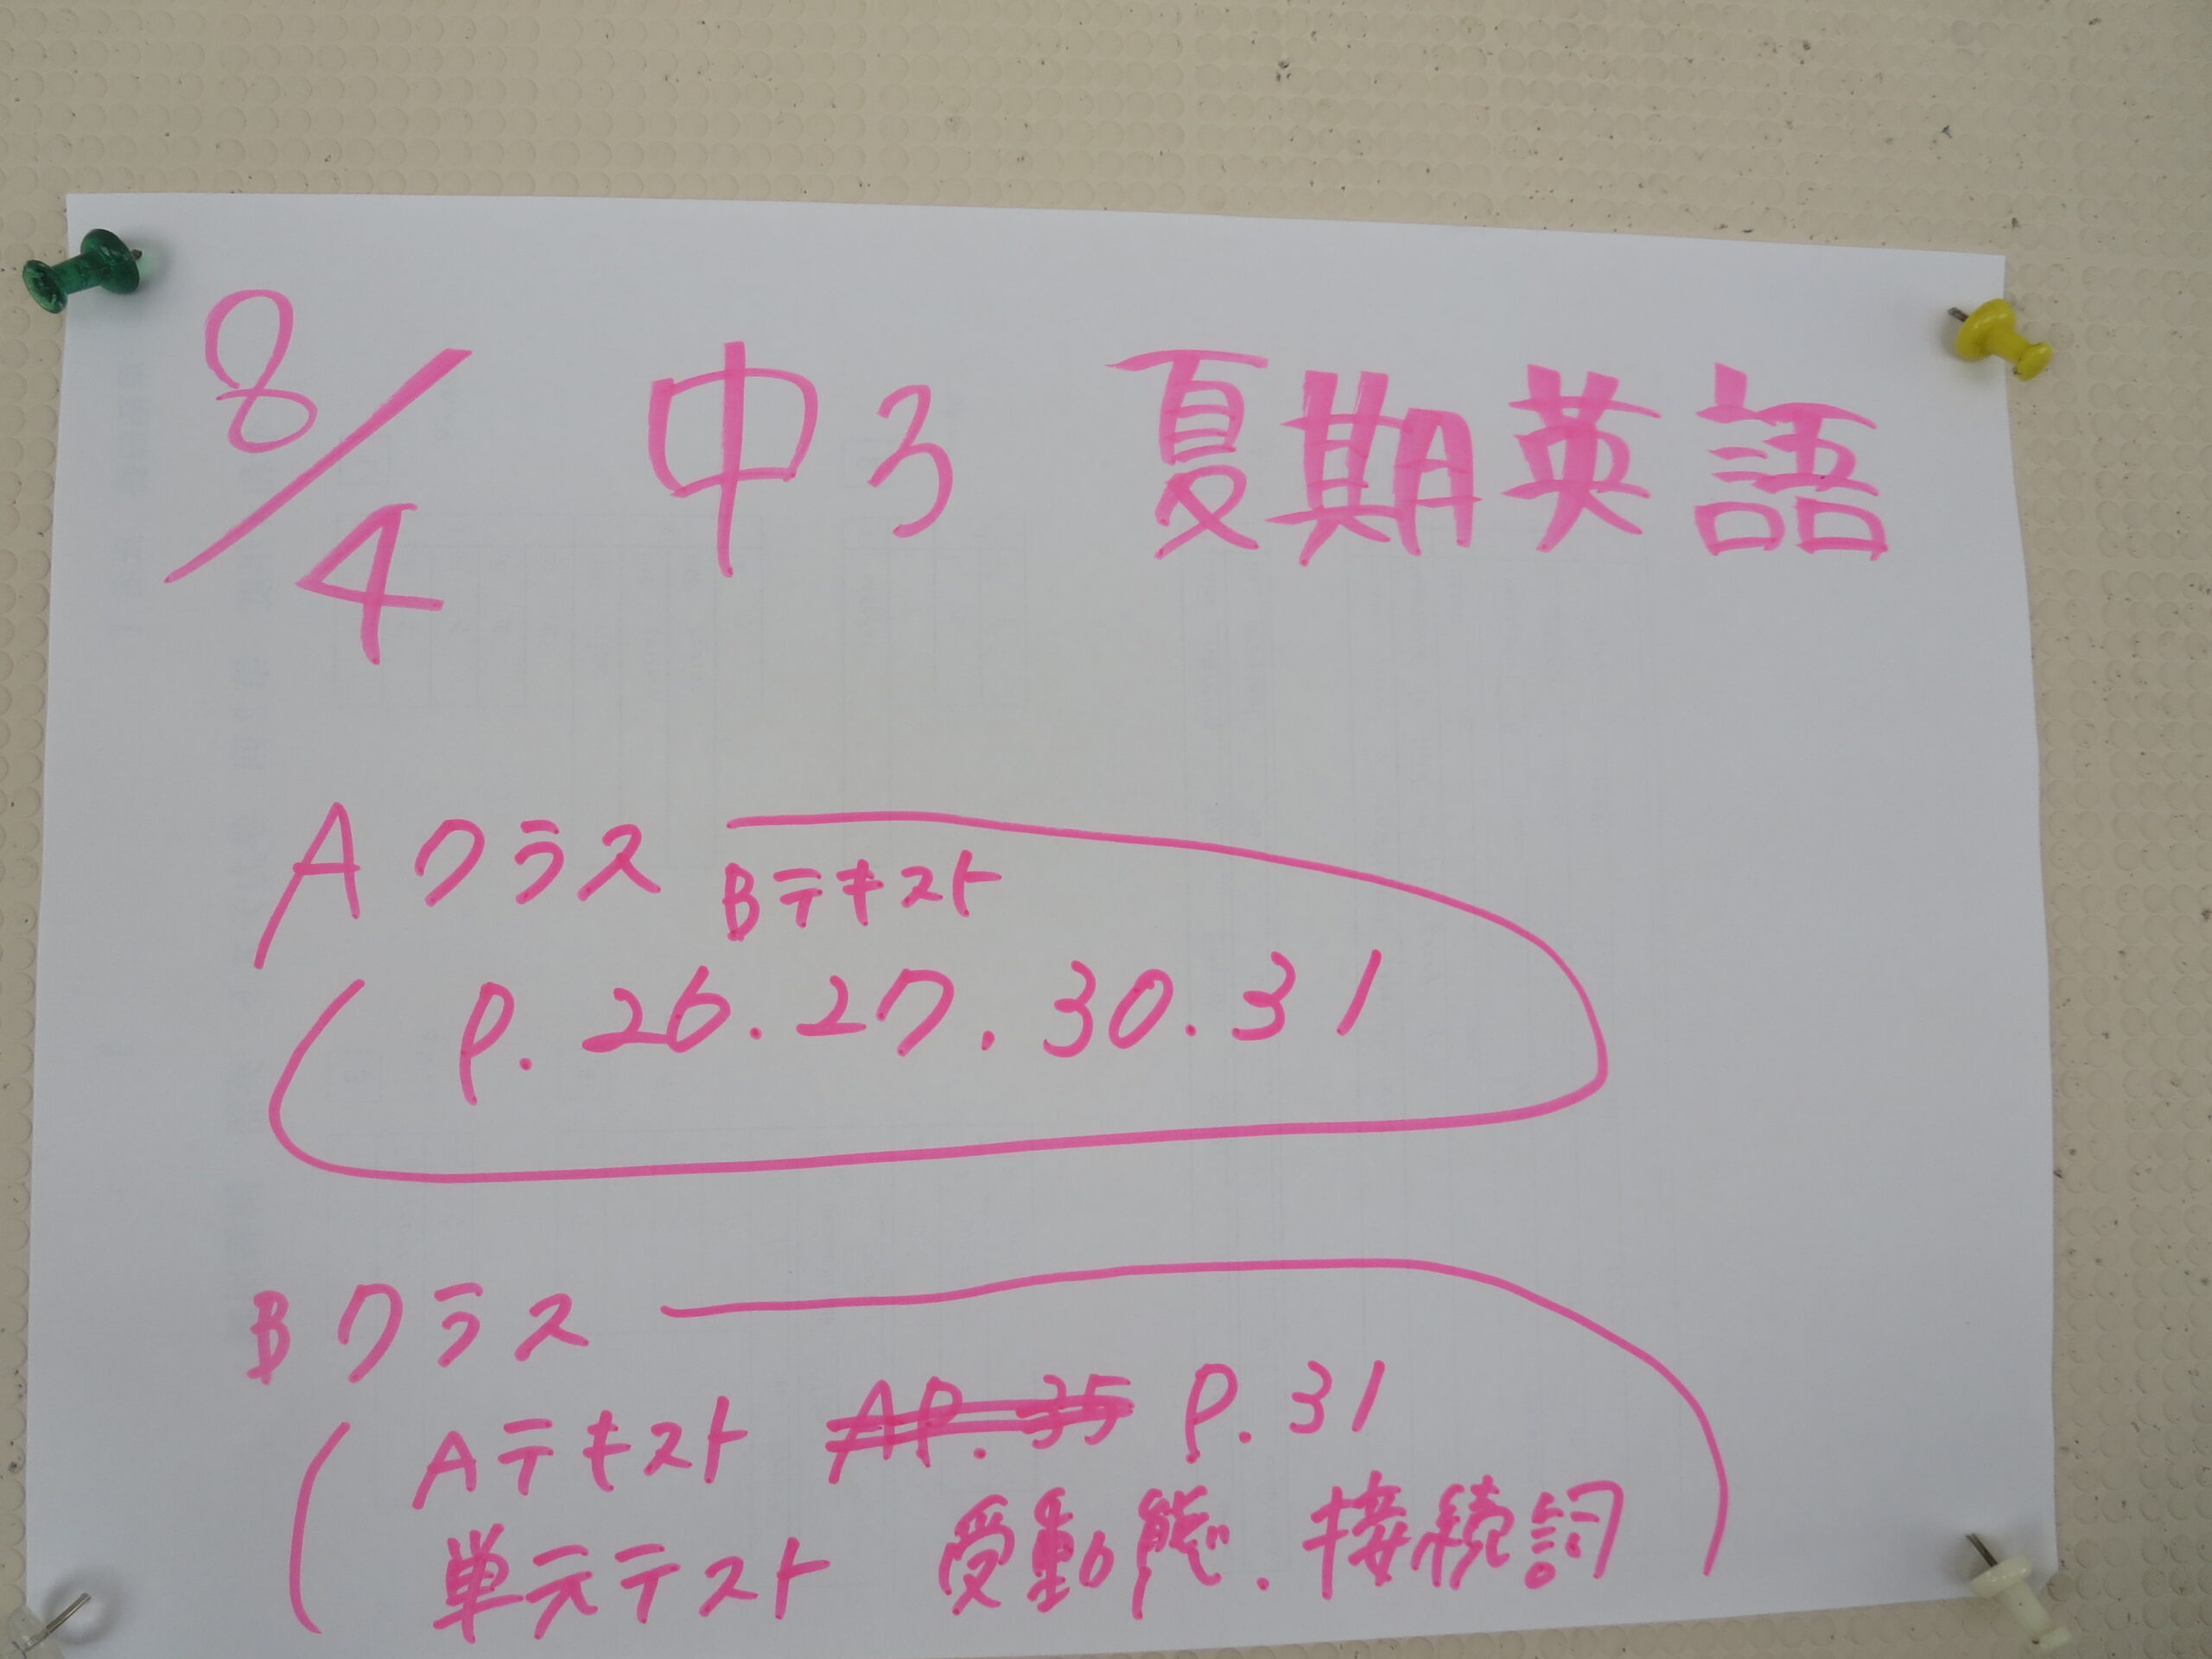 8/4 中3 夏期英語
Aクラス
Bテキスト
P.26.27.30.31
Bクラス
Aテキスト AP.35 P.31
単元テスト 受動態.接続詞